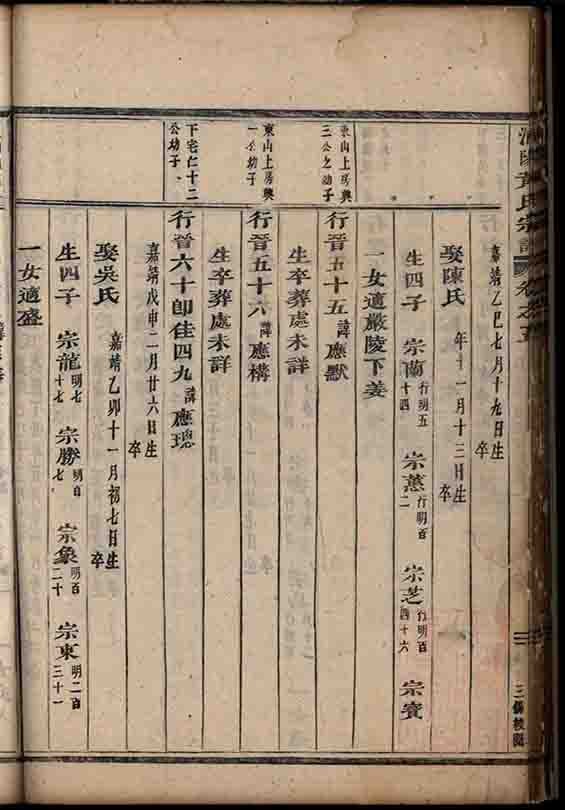 黃氏宗譜 卷之五
三
嘉靖乙巳七月十九日生
卒
娶陳氏 年十一月十三日生
卒
生四子 宗蘭行明五十四 宗蕙行明百二 宗芝行明百四十六 宗賓
一女適嚴陵下姜
東山上房興三公之幼子
行晉五十五諱應默
生卒葬處未詳
東山上房興一公幼子
行晉五十六諱應構
生卒葬處未詳
下宅仁十二公幼子
行晉六十卽佳四九諱應璁
嘉靖戊申二月廿六日生
卒
娶吳氏 嘉靖乙卯十一月初七日生
卒
生四子 宗龍明七十七 宗勝明百七 宗象明百二十 宗東明二百三十一
一女適盛